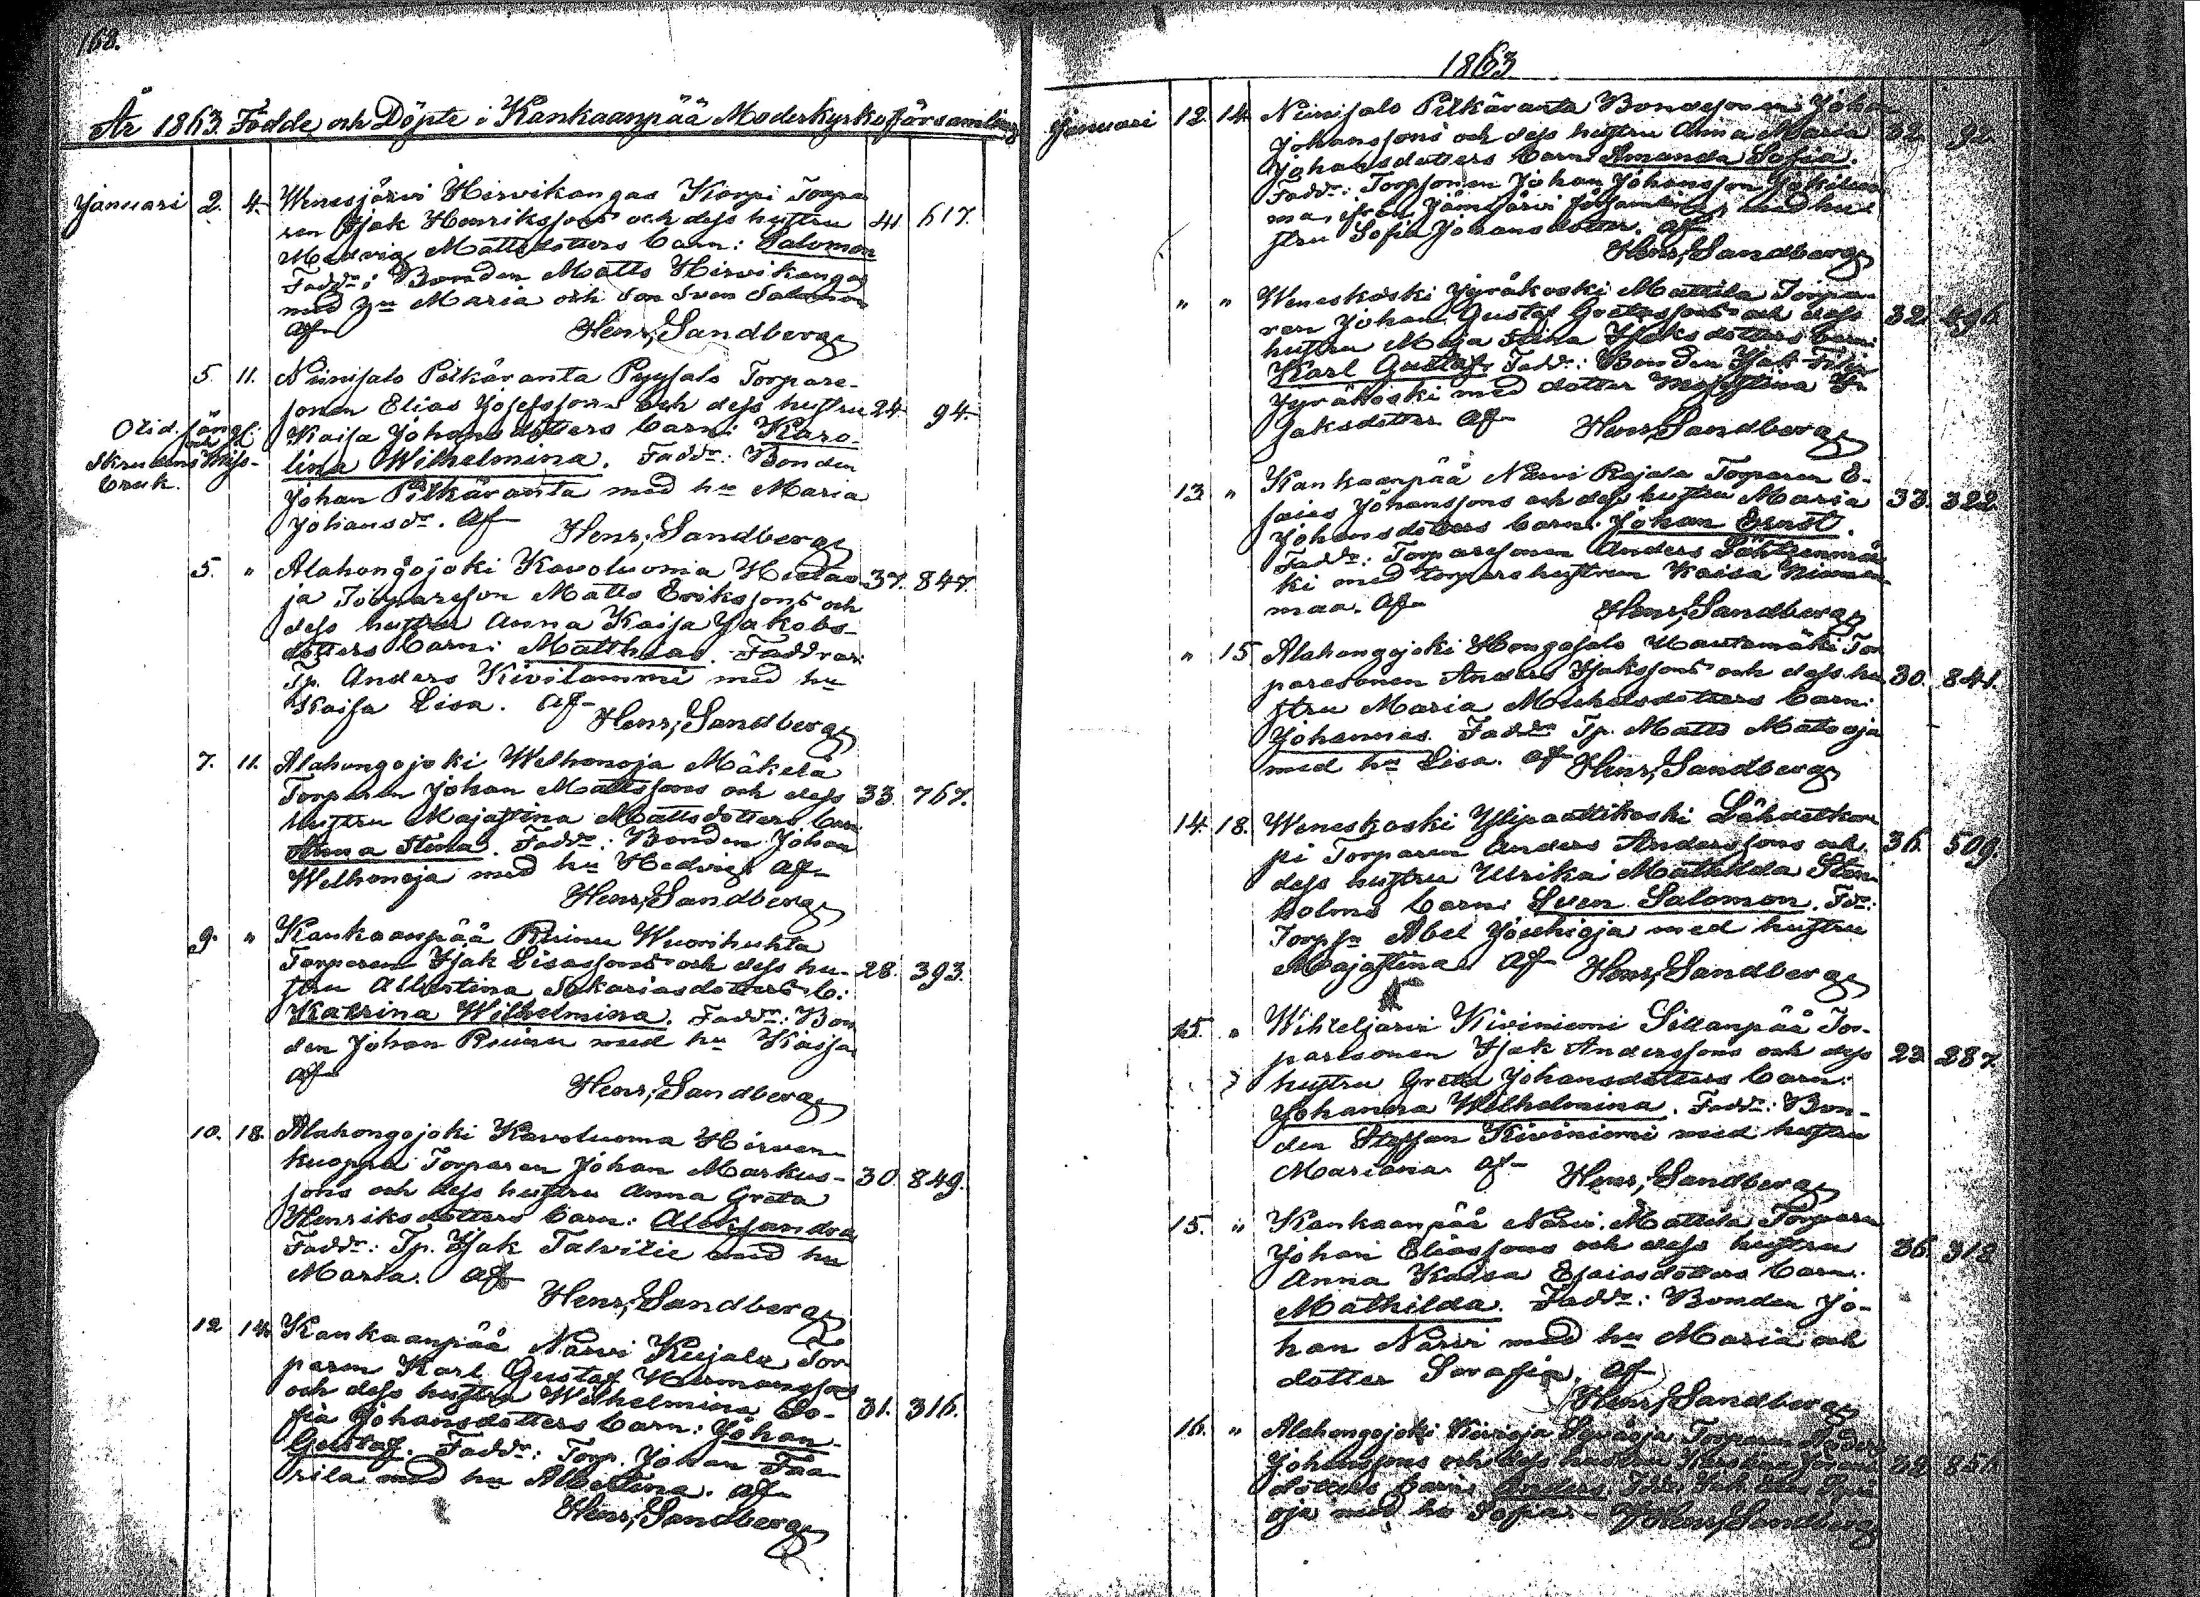 168.
År 1863. Födde och Döpte i Kankaanpää Moderkyrkoförsamling
Januari 2. 4. Wenesjärvi Hirvikangas Korpi Torpa-
ren Isak Henrikssons och dess hustru 41 617.
Hedvig Mattsdotters barn: Salomon
Faddr: Bonden Matts Hirvikangas
med hu Maria och Son Sven Salomon
af
Henr; Sandberg
5. 11. Niinisalo Pitkäranta Pyysalo Torpare-
sonen Elias Josefssons och dess hustru 24. 94.
Kaisa Johansdotters barn: Karo-
lina Wilhelmina. Faddr: Bonden
Johan Pitkäranta med hu Maria
Johansdr. af
Henr; Sandberg
Otid. säng-
och
Skrudens Miss-
bruk.
5. " Alahongojoki Kavoluoma Hietao- 37. 847.
ja Torpareson Matts Erikssons och
dess hustru Anna Kaisa Jakobs-
dotters barn: Matthias. Faddrar:
Tp. Anders Kivilammi med hu
Kaisa Lisa. af
Henr; Sandberg
7. 11. Alahongojoki Welhonoja Mäkelä
Torparen Johan Mattssons och dess 33. 767.
hustru Majastina Mattsdotters barn
Anna Stina. Faddr: Bonden Johan
Welhonoja med hu Hedvig. af
Henr; Sandberg
9. " Kankaanpää Ruinu Wuorihuhta
Torparen Isak Lisassons och dess hu- 28. 393.
stru Albertina Sakariasdotters b:
Katrina Wilhelmina. Faddr: Bon
den Johan Ruinu med hu Kaisa
af
Henr; Sandberg
10. 18. Alahongojoki Kavoluoma Hirven-
kuoppa Torparen Johan Markus- 30. 849.
sons och dess hustru Anna Greta
Henriksdotters barn: Aleksandra
Faddr: Tp. Isak Talvitie med hu
Maria. af
Henr; Sandberg
12 14 Kankaanpää Närvi Kujala Tor
paren Karl Gustaf Hermanssons
och dess hustru Wilhelmina So-
fia Johansdotters barn: Johan 31. 316.
Gustaf. Faddr: Torp. Johan Faa-
rila med hu Albertina. af
Henr; Sandberg
1863
Januari 12 14 Niinisalo Pitkäranta Bondesonen Johan
Johanssons och dess hustru Anna Maria 32. 92.
Johansdotters barn: Amanda Sofia.
Faddr: Torpsonen Johan Johansson
från Jämijärvi församling med hu
stru Sofia Johansdotter. af
Henr; Sandberg
" " Weneskoski Jyräkoski Mattila Torpa-
ren Johan Gustaf Gretassons och dess 32. 496.
hustru Maja Stina Isaksdotters barn:
Karl Gustaf. Faddr: Bonden Isak
Jyräkoski med dotter Majastina I-
saksdotter af
Henr; Sandberg
13 " Kankaanpää Närvi Rajala Torparen E-
saias Johanssons och dess hustru Maria 33. 322.
Johansdotters barn: Johan Ernst.
Faddr: Torparesonen Anders Lähteenmä-
ki med torparehustrun Kaisa Niemen-
maa. af
Henr; Sandberg
" 15 Alahongojoki Hongosalo Hautamäki Tor
paresonen Anders Isakssons och dess hu 30. 841.
stru Maria Michelsdotters barn:
Johannes. Faddr Tp. Matts Matooja
med hu Lisa. af Henr; Sandberg
14. 18. Weneskoski Ylipaattikoski Lähdetkor
pi Torparen Anders Anderssons och 36. 509.
dess hustru Ulrika Mathilda Sten-
holms barn: Sven Salomon. Fdr:
Torpsn Abel Jouhioja med hustru
Majastina. af Henr; Sandberg
15. " Wihteljärvi Kiviniemi Sillanpää Tor-
paresonen Isak Anderssons och dess 23. 287.
hustru Greta Johansdotters barn:
Johanna Wilhelmina. Faddr: Bon-
den Steffan Kiviniemi med hustru
Mariana. af Henr; Sandberg
15. " Kankaanpää Närvi Mattila Torparen
Johan Eliassons och dess hustru 36. 312
Anna Kaisa Esaiasdotters barn:
Mathilda. Faddr: Bonden Jo-
han Närvi med hu Maria och
dotter Serafia. af
Henr; Sandberg
16. " Alahongojoki Kivioja Torparen Anders
Johanssons och dess hustru 851.
dotters barn: Anders. Fdr: Isak
oja med hu Sofia. Henr; Sandberg